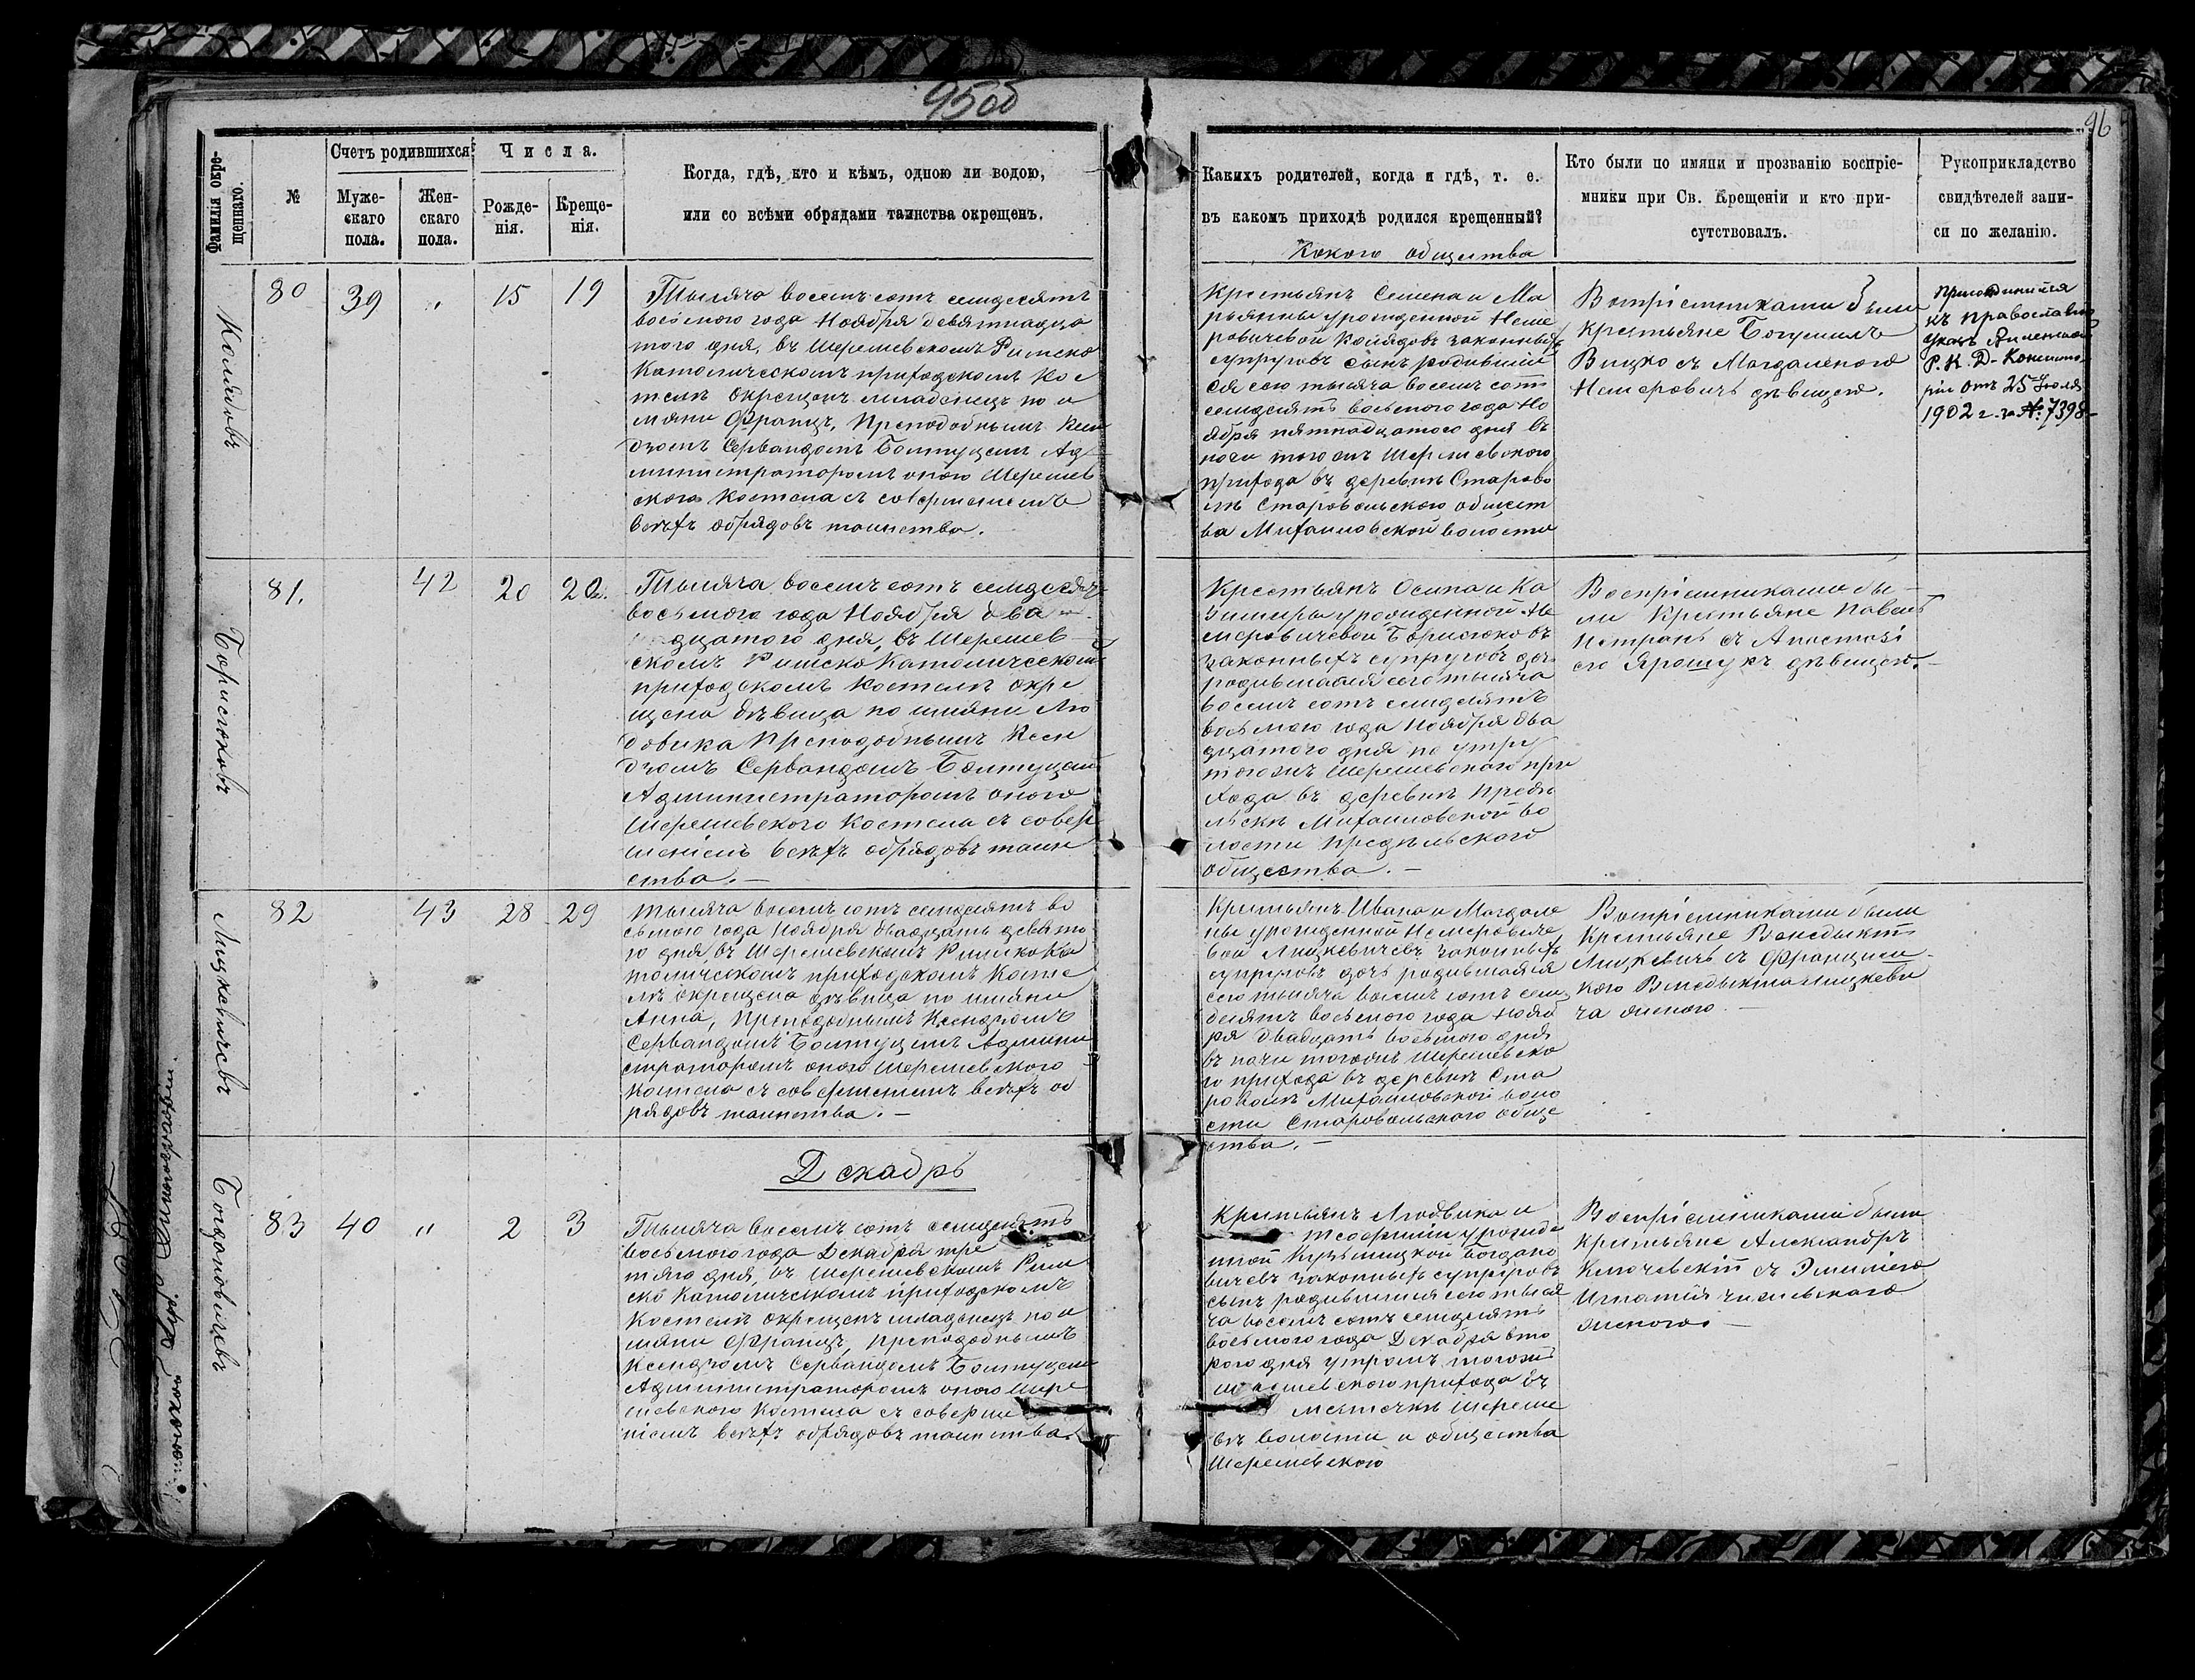 95об
96
Фамилія окре-
щеннаго.
№
Счетъ родившихся:
Муже-
скаго
пола.
Жен-
скаго
пола.
Числа.
Рожде-
нія.
Креще-
нія.
Когда, гдѣ, кто и кѣмъ, одною ли водою,
или со всѣми обрядами таинства окрещенъ.
Какихъ родителей, когда и гдѣ, т. е.
въ какомъ приходѣ родился крещенный?
Какого общества
Кто были по имяни и прозванію воспріе-
мники при Св. Крещеніи и кто при-
сутствовалъ.
Рукоприкладство
свидѣтелей запи-
си по желанію.
Колядовъ
80
39
"
15
19
Тысяча восемьсотъ семдесятъ
восьмого года Ноября девятнадца
того дня, въ Шерешевскомъ Римско
Католическомъ приходскомъ Кос
телѣ окрещенъ младенецъ по и
мяни Францъ, Преподобнымъ Ксен
дзомъ Сервандомъ Болтуцемъ Ад
министраторомъ оного Шерешев
ского Костела съ совершеніемъ
всѣхъ обрядовъ таинства.
Крестьянъ Семена и Ма
рьянны урожденной Неме
ровичевой Колядовъ законныхъ
супруговъ сынъ родившій
ся сего тысяча восемь сотъ
семдесятъ восьмого года Но
ября пятнадцатого дня въ
ночи того жъ Шерешевского
прихода въ деревнѣ Старово
лѣ Старовольского общест
ва Михайловской волости
Воспріемниками были
Крестьяне Богумилъ
Вицко съ Магдаленою
Немеровичъ дѣвицею.
Присоединился
къ православію
указъ Виленской
Р. К. Д. Консисто
ріи отъ 25 Іюля
1902 г. за № 7398
Борисюковъ
81.
42
20
20.
Тысяча восемь сотъ семдесятъ
восьмого года Ноября два
дцатого дня, въ Шерешев
скомъ Римско Католическомъ
приходскомъ Костелѣ окре
щена дѣвица по имяни Лю
довика Преподобнымъ Ксен
дзомъ Сервандомъ Болтуцемъ
Администраторомъ оного
Шерешевского Костела съ совер
шеніемъ всѣхъ обрядовъ таин
ства.
Крестьянъ Осипа и Ка
зимиры урожденной Не
меровичевой Борисюковъ
законныхъ супруговъ дочь
родившаяся сего тысяча
восемь сотъ семдесятъ
восьмого года Ноября два
дцатого дня по утру
того жъ Шерешевского при
хода въ деревнѣ Предѣ
льскѣ Михайловской во
лости Предѣльского
общества.
Воспріемниками бы
ли Крестьяне Павелъ
Петранъ съ Апостазі
ею Ярошукъ дѣвицею.
Лицкевичевъ
82
43
28
29
Тысяча восемь сотъ семдесятъ во
сьмого года Ноября двадцать девято
го дня, въ Шерешевскомъ Римско Ка
толическомъ приходскомъ Косте
лѣ окрещена дѣвица по имяни
Анна, Преподобнымъ Ксендзомъ
Сервандомъ Болтуцемъ Админи
страторомъ оного Шерешевского
Костела съ совершеніемъ всѣхъ об
рядовъ таинства.
Крестьянъ Ивана и Магдале
ны урожденной Немеровиче
вой Лицкевичевъ законныхъ
супруговъ дочь родившаяся
сего тысяча восемь сотъ сем
десятъ восьмого года Нояб
ря двадцать восьмого дня
въ ночи того жъ Шерешевско
го прихода въ деревнѣ Ста
роволѣ Михайловской воло
сти Старовольского обще
ства.
Воспріемниками были
Крестьяне Венедыктъ
Лицкевичъ съ Францыш
кою Венедыкта Лицкеви
ча женою.
Декабрь
Богдановичевъ
83
40
"
2
3
Тысяча восемь сотъ семдесятъ
восьмого года Декабря тре
тяго дня, въ Шерешевскомъ Рим
ско Католическомъ приходскомъ
Костелѣ окрещенъ младенецъ по и
мяни Францъ, Преподобнымъ
Ксендзомъ Сервандомъ Болтуцемъ
Администраторомъ оного Шере
шевского Костела съ соверше
ніемъ всѣхъ обрядовъ таинства.
Крестьянъ Людвика и
Теофиліи урожде
нной Кузьмицкой Богдано
вичевъ законныхъ супруговъ
сынъ родившійся сего тыся
ча восемь сотъ семдесятъ
восьмого года Декабря вто
рого дня утромъ того жъ
Шерешевского прихода въ
мѣстечкѣ Шереше
вѣ волости и общества
Шерешевского
Воспріемниками были
Крестьяне Александръ
Ключевскій съ Эмиліею
Игнатія
женою.